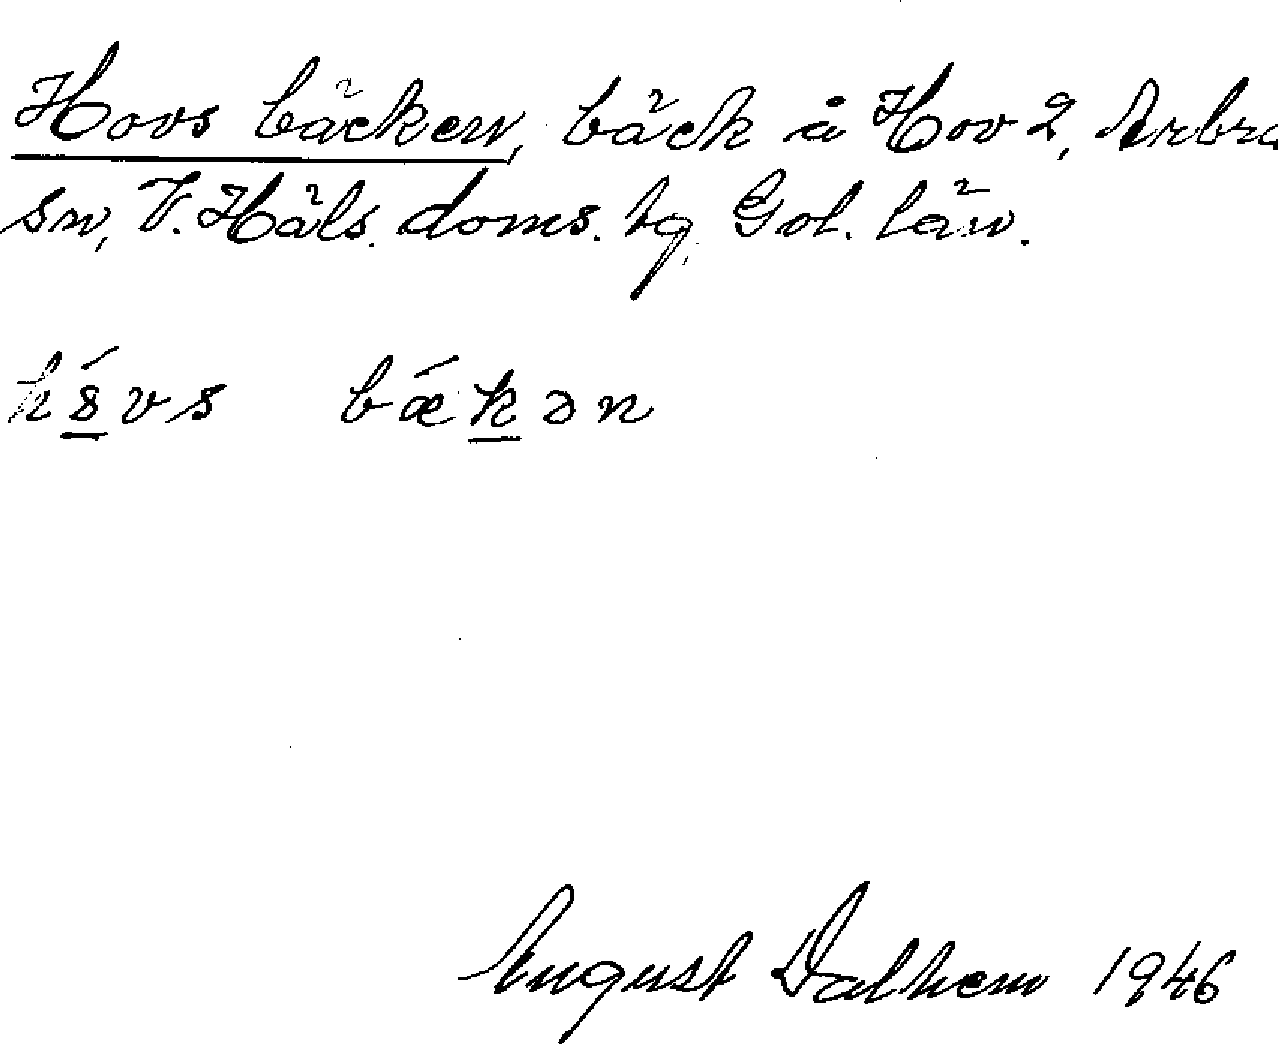 Hovs bäcken, bäck å Hov 2, Arbra
sn, V. Häls. doms. lg. Gol. län.
bækən
August Dalhem 1946